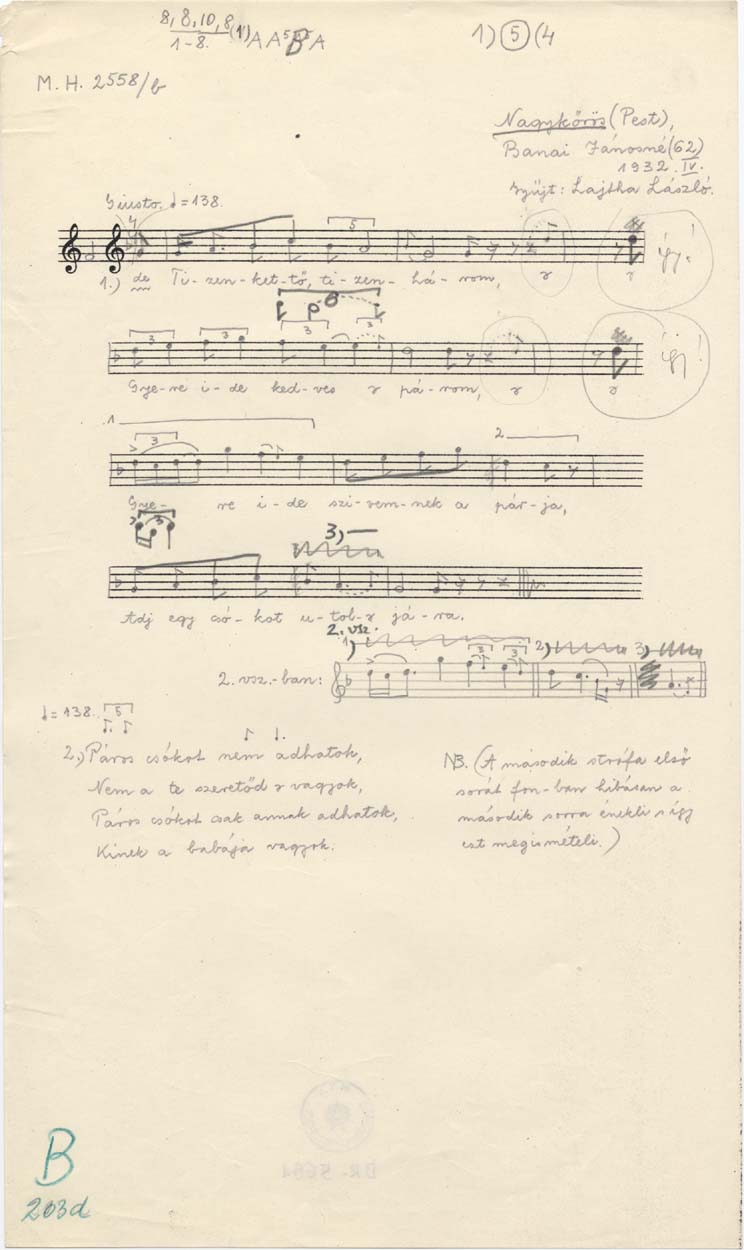 8, 8, 10, 8 (1) A A⁵ B A
1-8.
1) 5 (4
M. H. 2558/b
Nagykőrös (Pest),
Banai Jánosné (62)
1932. IV.
Gyűjt: Lajtha László.
Giusto. ♩=138.
5
1.) de Ti-zen-ket-tő, ti-zen-há-rom,
így!
3 3 3 3
Gye-re i-de ked-ves r pá-rom, r
így!
1 2.
3
Gye-re i-de szi-vem-nek a pár-ja,
3
3)
Adj egy csó-kot u-tol-r já-ra.
2. vsz.
1) 3 3 2) 3)
2. vsz.-ban:
♩=138. 5
2.) Páros csókot nem adhatok,
Nem a te szeretőd r vagyok,
Páros csókot csak annak adhatok,
Kinek a babája vagyok.
NB. (A második strófa első
sorát fon-ban hibásan a
második sorra énekli s így
ezt megismétli.)
B
203d